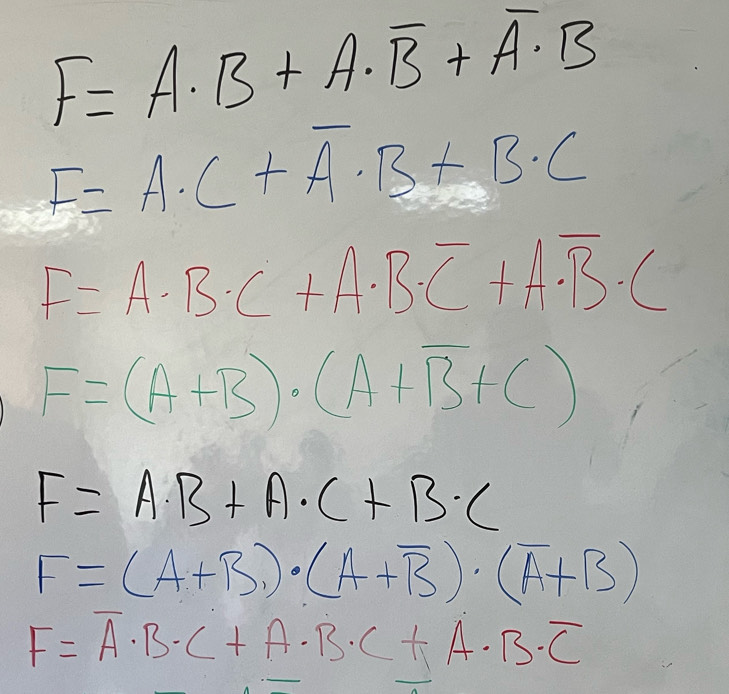 F = A·B + A·B̅ + A̅·B
F = A·C + A̅·B + B·C
F = A·B·C + A·B·C̅ + A·B̅·C
F = (A+B)·(A+B̅+C)
F = A·B + A·C + B·C
F = (A+B)·(A+B̅)·(A̅+B)
F = A̅·B·C + A·B·C + A·B·C̅